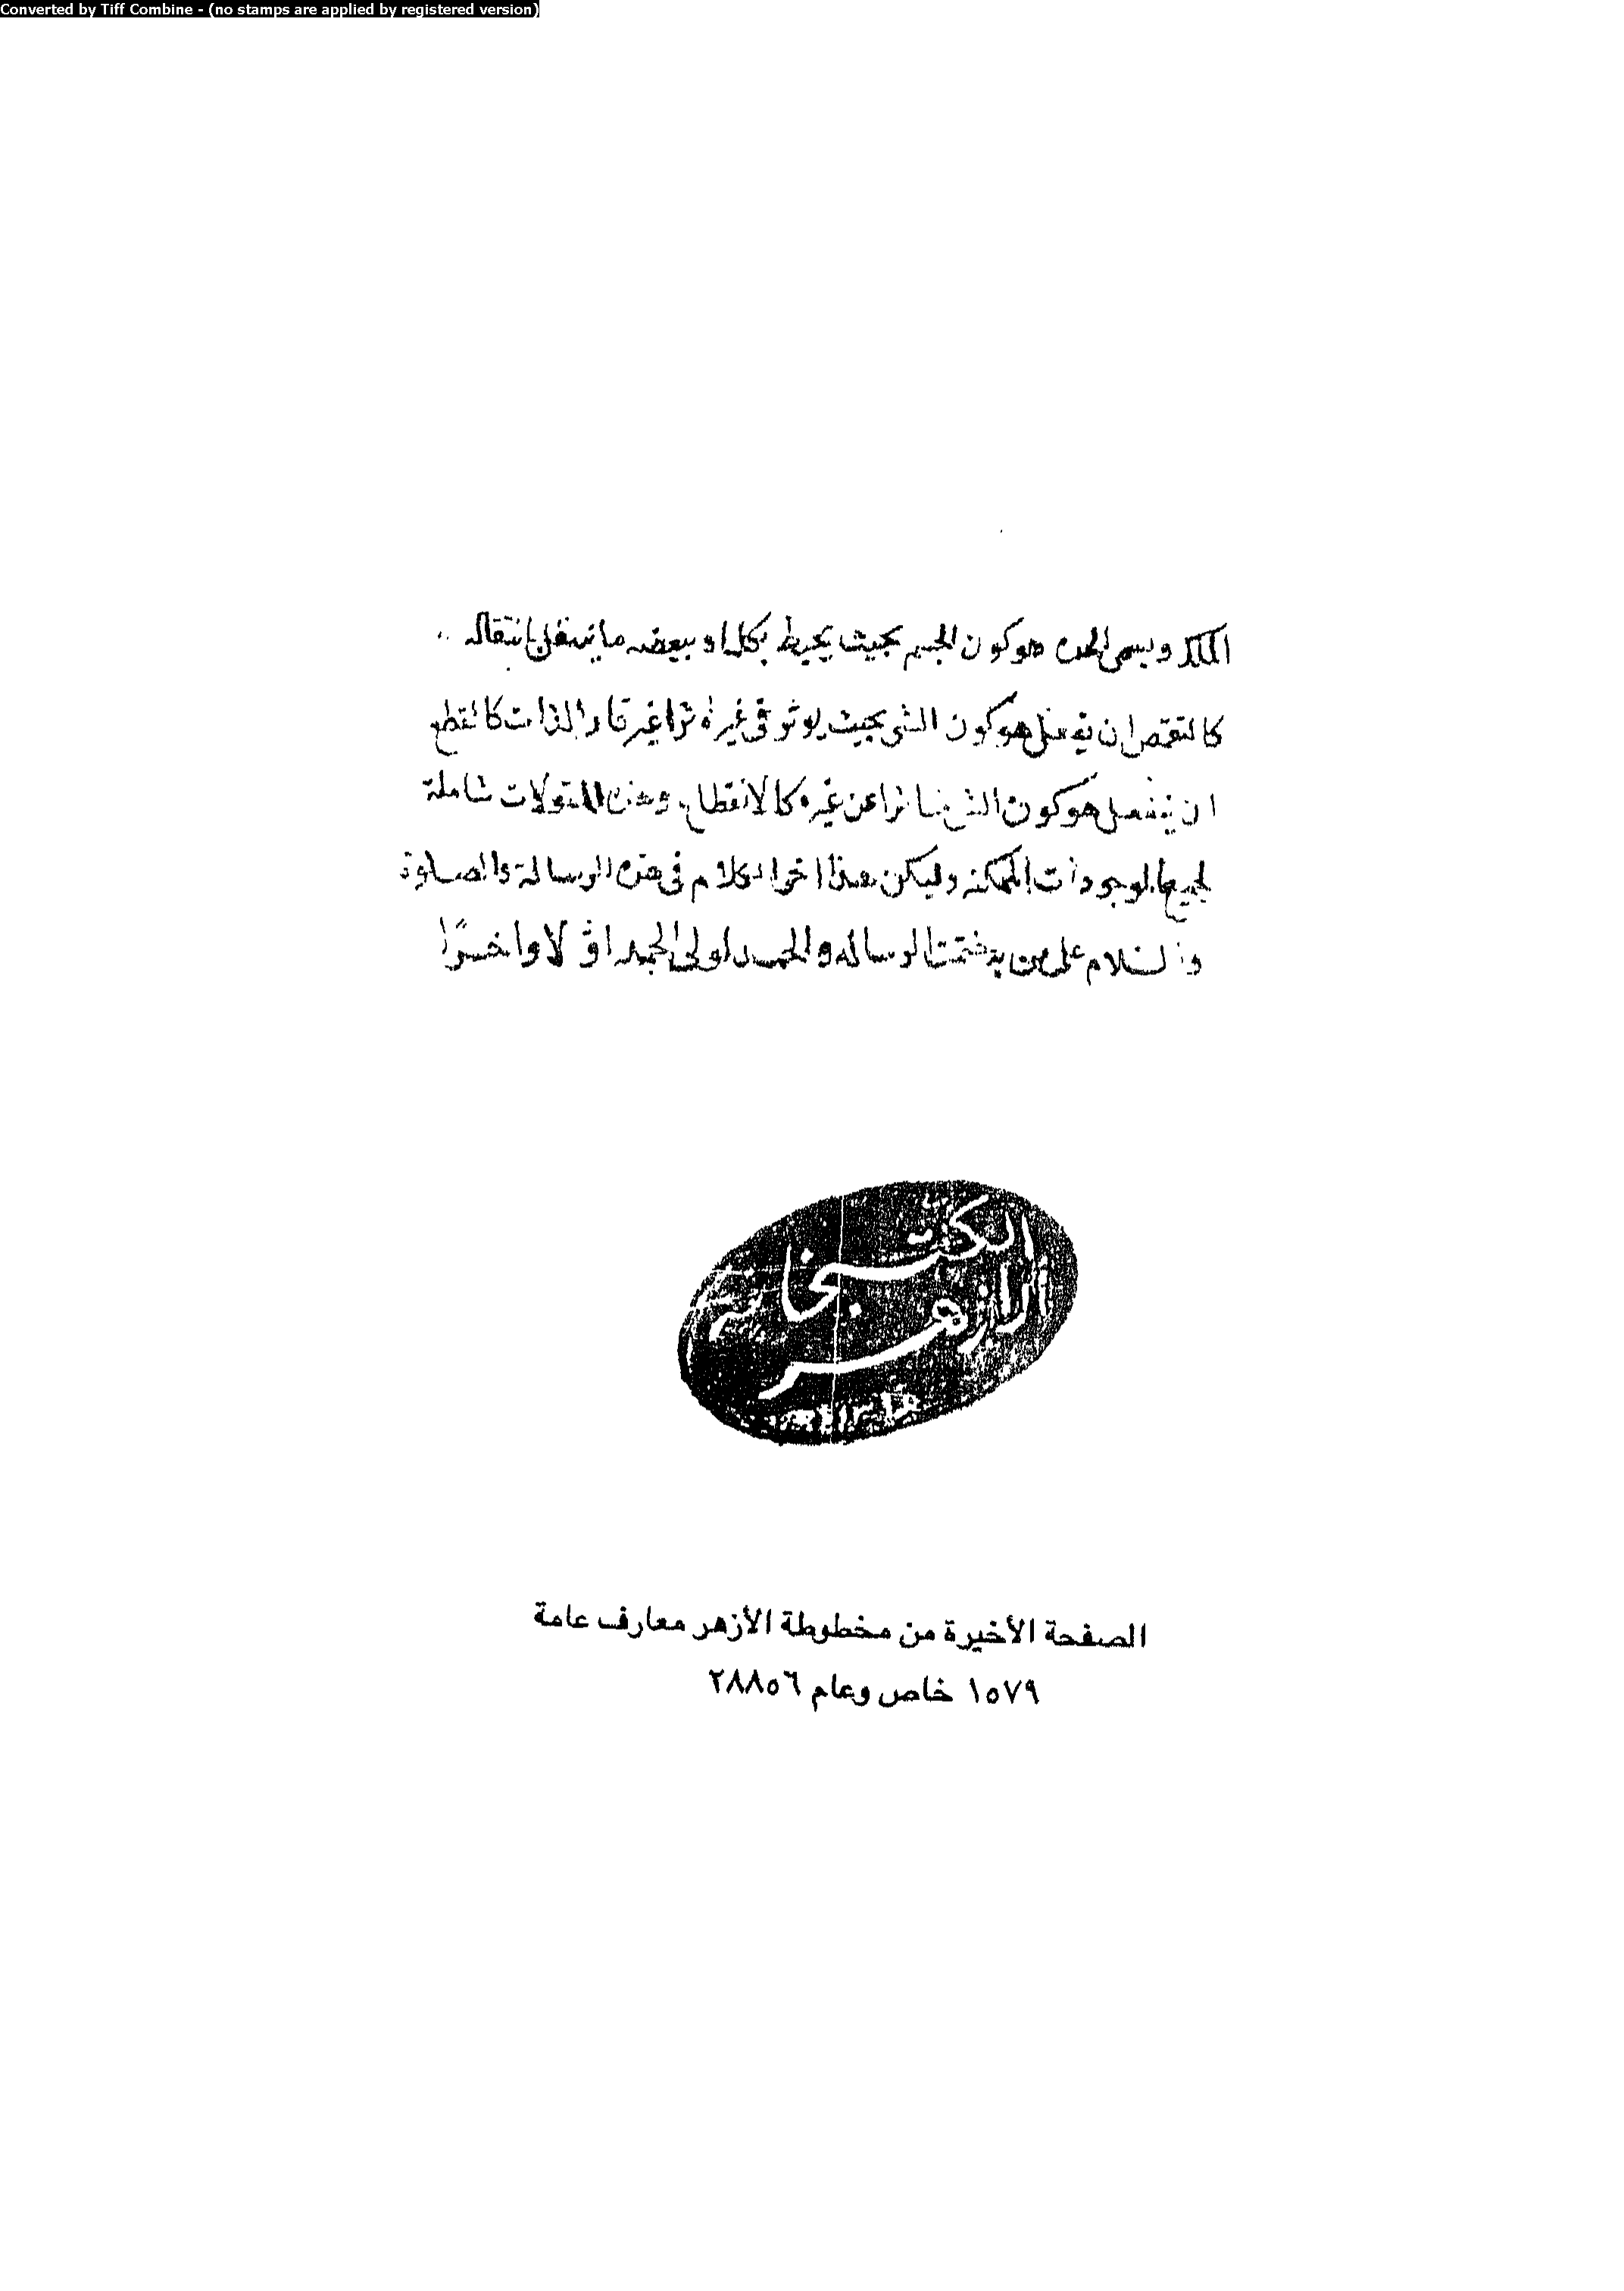 Converted by Tiff Combine - (no stamps are applied by registered version)
الملك ويسمى الجدة هو كون الجسم بحيث يحيط بكله او ببعضه ما ينتقل بانتقاله
كالتقمص ان يفعل هو كون الشي بحيث يوثر في غيره اثرا غير قار الذات كالقطع
ان ينفعل هو كون الشي متاثرا عن غيره كالانقطاع وهذه المقولات شاملة
لجميع الموجودات الممكنه وليكن هذا اخر الكلام في هذه الرسالة والصلوة
والسلام على من به ختمت الرساله والحمد لولي الحمد اوّلا واخرًا
الكتبخانه
الازهر
الصفحة الأخيرة من مخطوطة الأزهر معارف عامة
١٥٧٩ خاص وعام ٢٨٨٥٦